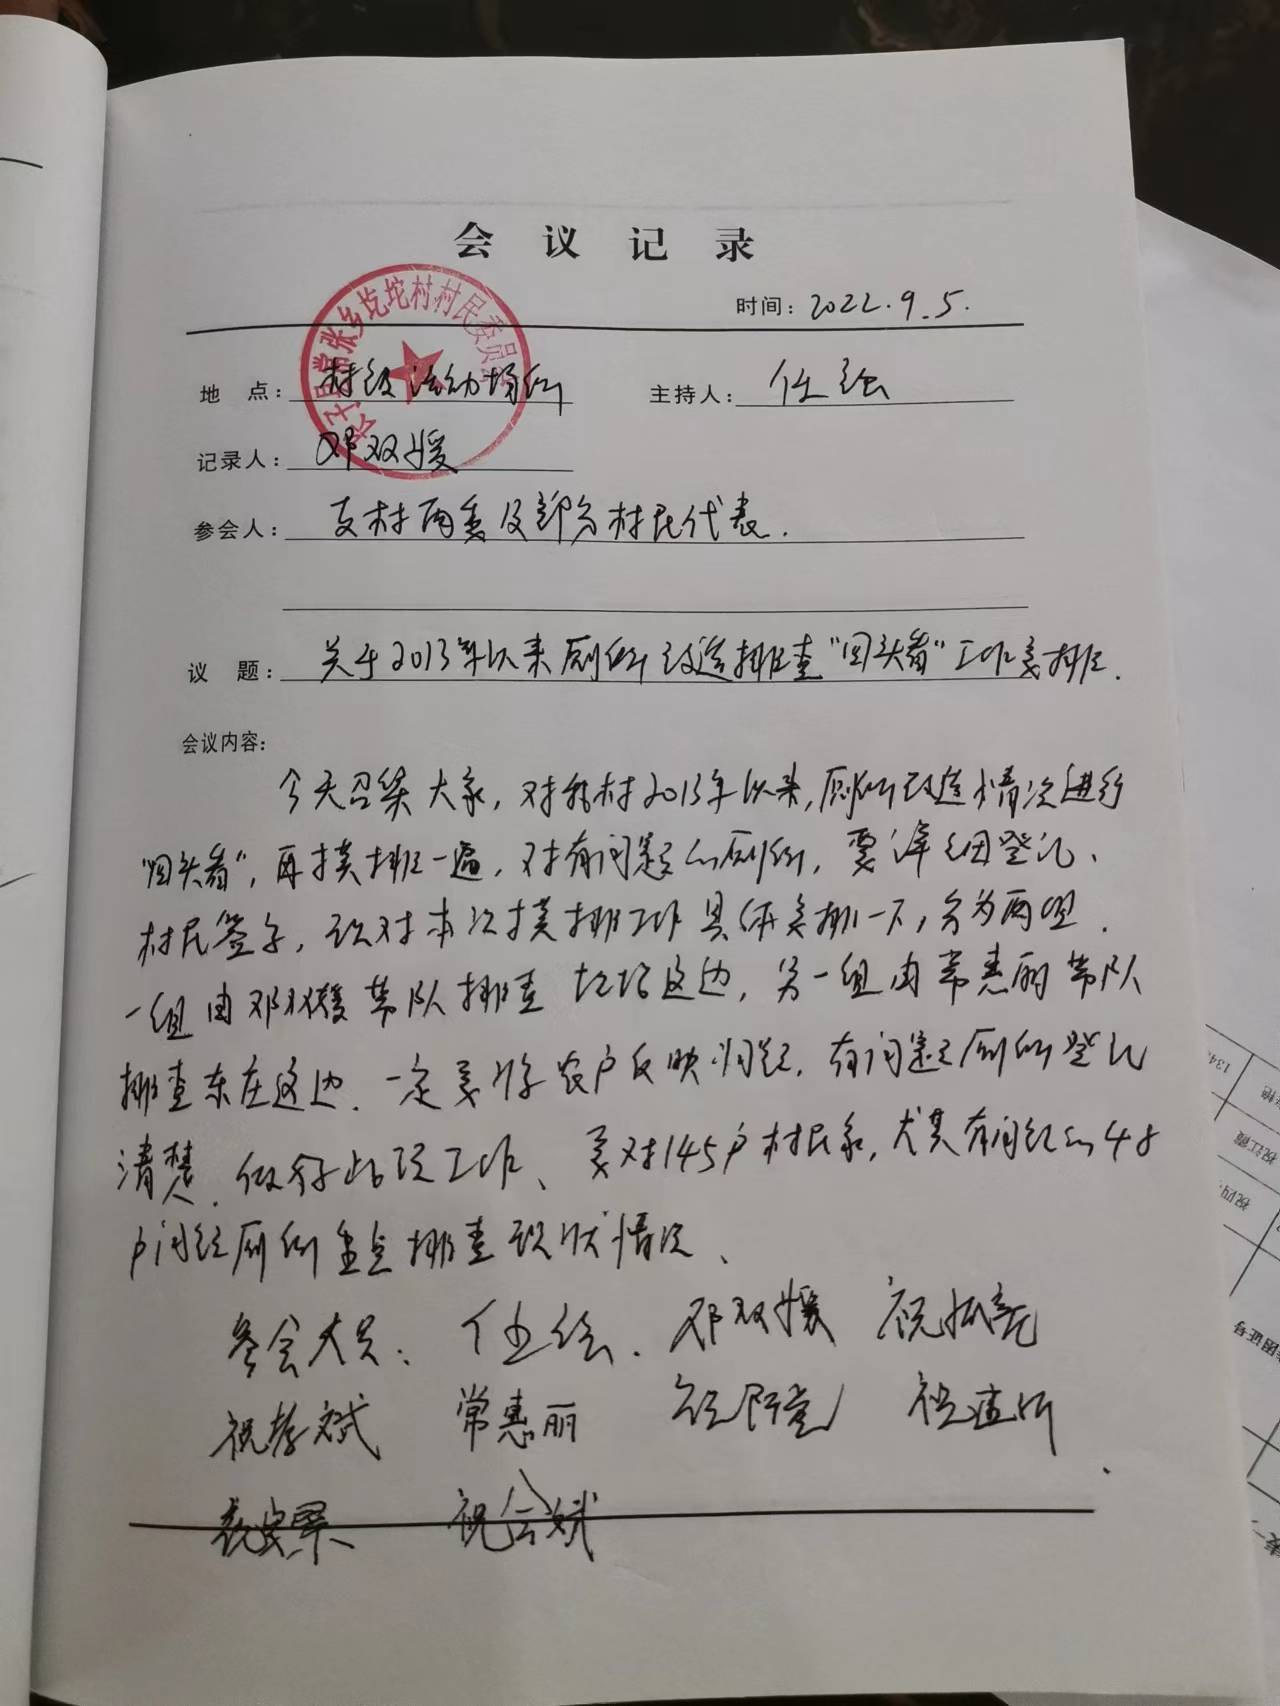 会议记录
时间：2022.9.5.
子县常张乡圪坨村村民委员会
地 点：村级活动场所 主持人：任
记录人：邓双媛
参会人：支村两委及部分村民代表.
议 题：关于2013年以来厕所改造排查“回头看”工作安排.
会议内容：
今天召集大家，对我村2013年以来，厕所改造情况进行
“回头看”，再摸排一遍，对有问题的厕所，要详细登记、
村民签字，现对本次摸排工作具体安排一下，分为两组.
一组由邓双媛带队排查圪坨这边，另一组由常惠丽带队
排查东庄这边.一定要将农户反映问题，有问题厕所登记
清楚.做好此项工作、要对145户村民家，尤其有问题的48
户问题厕所重点排查现状情况、
参会人员：任 . 邓双媛 祝
祝孝斌 常惠丽 祝
祝会斌